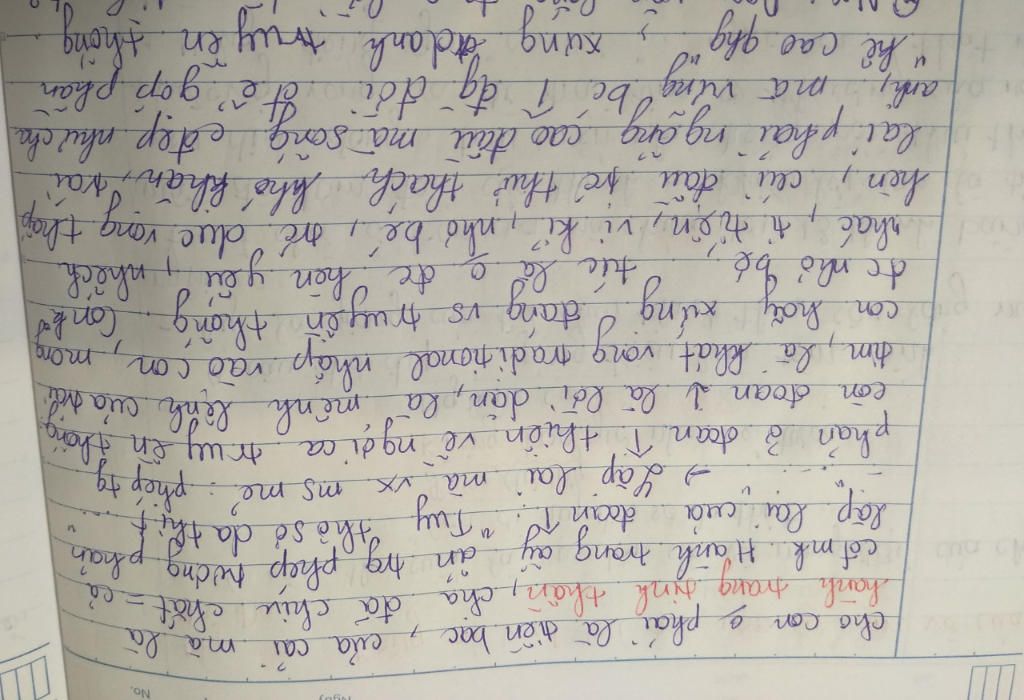 No.
cho con ko phải là tiền bạc, của cải mà là
hành trang tinh thần, cha đã chiu chắt = cả
cđ mk. Hành trang ấy ẩn trg phép tương phản
lặp lại của đoạn 1: "Tuy thô sơ da thịt ...
... " → Lặp lại mà vx ms mẻ: phép tg
phản ở đoạn 1 thiên về ngợi ca truyền thống
còn đoạn 2 là lời dặn, là mệnh lệnh của trái
tim, là khát vọng traditional nhập vào con, mong
con hãy xứng đáng vs truyền thống. "Con k
đc nhỏ bé ... tức là ko đc hèn yếu, nhếch
nhác, ti tiện, vị kỉ, nhỏ bé, dục vọng thấp
hèn, cúi đầu trc thử thách, khó khăn, trái
lại phải ngẩng cao đầu mà sống đẹp như cha
anh, mà vững bc đg đời để góp phần
"kê cao qhg", xứng danh truyền thống.